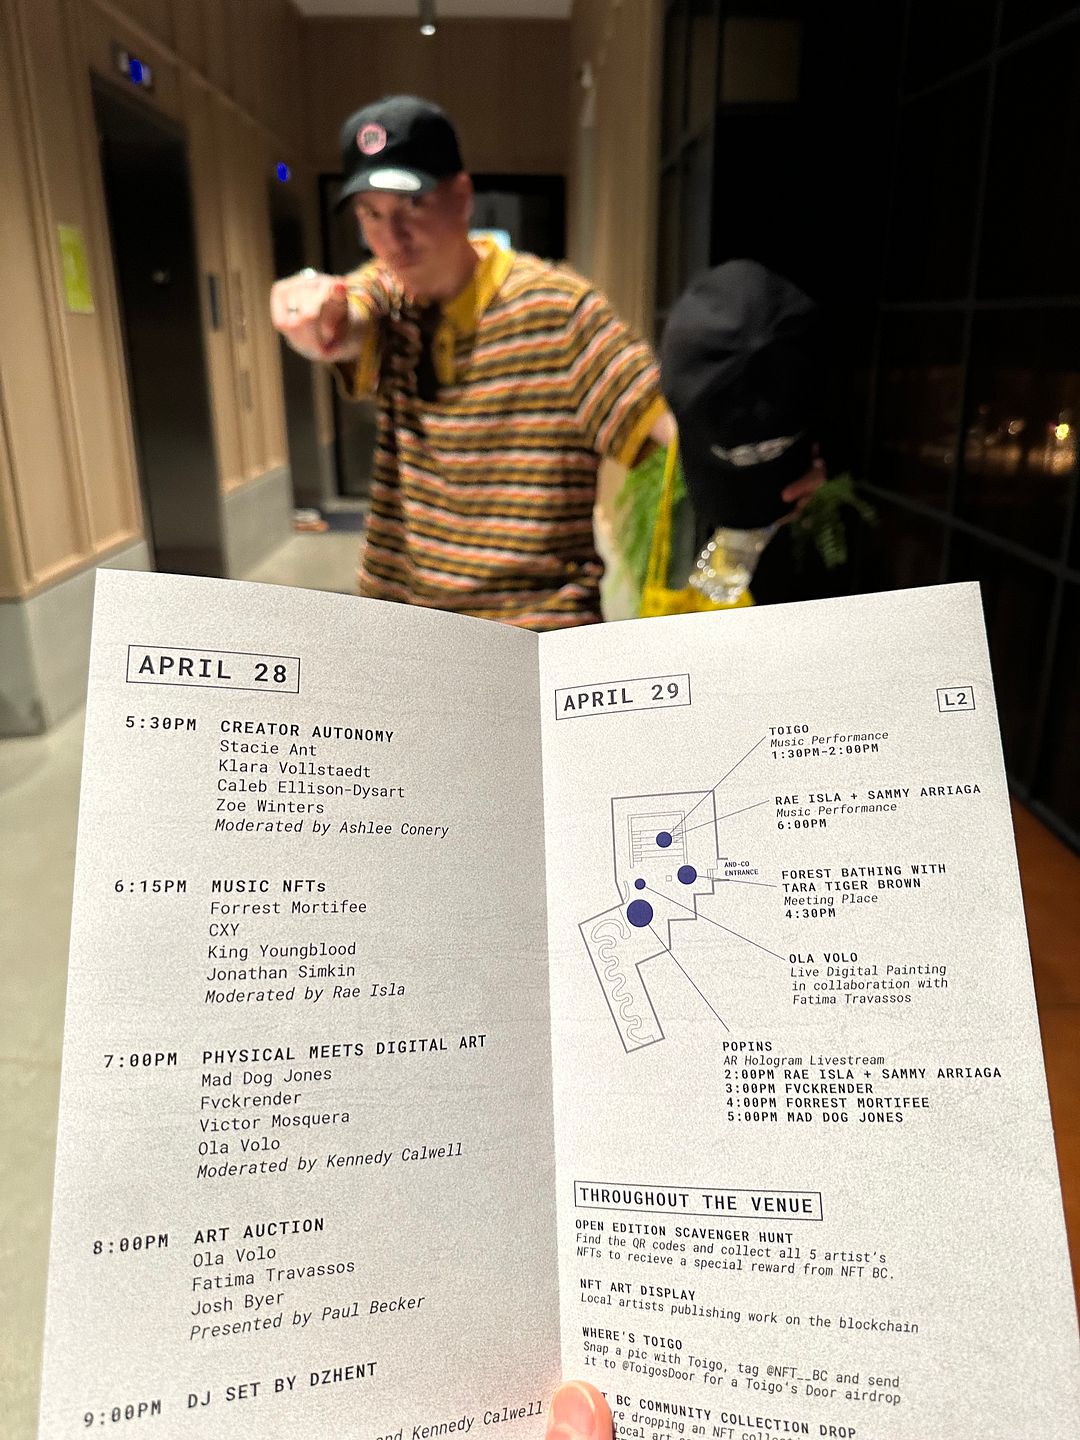 APRIL 28
5:30PM CREATOR AUTONOMY
Stacie Ant
Klara Vollstaedt
Caleb Ellison-Dysart
Zoe Winters
Moderated by Ashlee Conery
6:15PM MUSIC NFTs
Forrest Mortifee
CXY
King Youngblood
Jonathan Simkin
Moderated by Rae Isla
7:00PM PHYSICAL MEETS DIGITAL ART
Mad Dog Jones
Fvckrender
Victor Mosquera
Ola Volo
Moderated by Kennedy Calwell
8:00PM ART AUCTION
Ola Volo
Fatima Travassos
Josh Byer
Presented by Paul Becker
9:00PM DJ SET BY DZHENT
and Kennedy Calwell
APRIL 29
L2
TOIGO
Music Performance
1:30PM-2:00PM
RAE ISLA + SAMMY ARRIAGA
Music Performance
6:00PM
AND-CO
ENTRANCE
FOREST BATHING WITH
TARA TIGER BROWN
Meeting Place
4:30PM
OLA VOLO
Live Digital Painting
in collaboration with
Fatima Travassos
POPINS
AR Hologram Livestream
2:00PM RAE ISLA + SAMMY ARRIAGA
3:00PM FVCKRENDER
4:00PM FORREST MORTIFEE
5:00PM MAD DOG JONES
THROUGHOUT THE VENUE
OPEN EDITION SCAVENGER HUNT
Find the QR codes and collect all 5 artist's
NFTs to recieve a special reward from NFT BC.
NFT ART DISPLAY
Local artists publishing work on the blockchain
WHERE'S TOIGO
Snap a pic with Toigo, tag @NFT__BC and send
it to @ToigosDoor for a Toigo's Door airdrop
BC COMMUNITY COLLECTION DROP
dropping an NFT
local art